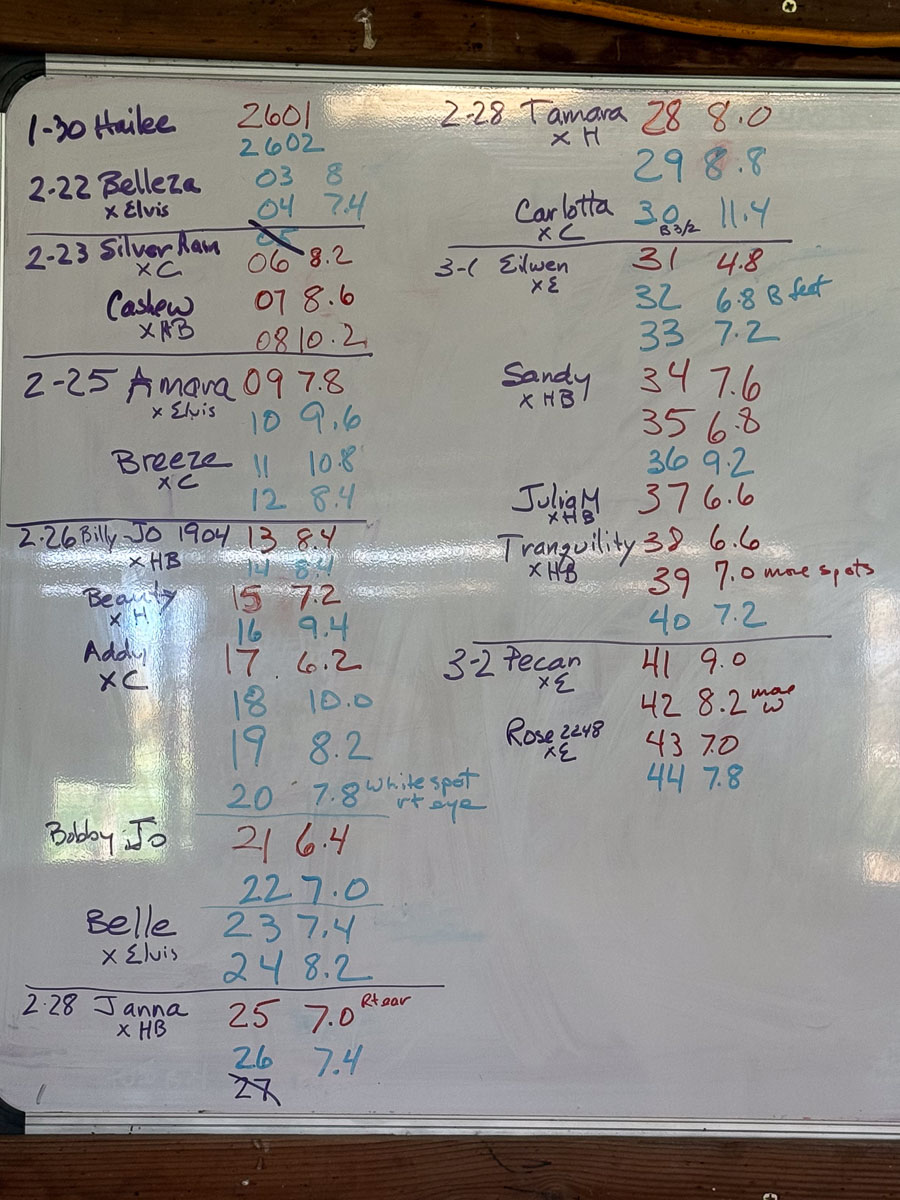 1-30 Hailee 2601
2602
2-22 Belleza 03 8
x Elvis 04 7.4
05
2-23 Silver Rain 06 8.2
x C
Cashew 07 8.6
x HB 08 10.2
2-25 Amara 09 7.8
x Elvis 10 9.6
Breeze 11 10.8
x C 12 8.4
2-26 Billy-Jo 1904 13 8.4
x HB 14 8.4
Beauty 15 7.2
x H 16 9.4
Addy 17 6.2
x C 18 10.0
19 8.2
20 7.8 white spot
rt eye
Bobby Jo 21 6.4
22 7.0
Belle 23 7.4
x Elvis 24 8.2
2-28 Janna 25 7.0 Rt ear
x HB 26 7.4
27
2-28 Tamara 28 8.0
x H 29 8.8
Carlotta 30 11.4
x C B 3/2
3-1 Eilwen 31 4.8
x E 32 6.8 B feet
33 7.2
Sandy 34 7.6
x HB 35 6.8
36 9.2
Julia M 37 6.6
x HB
Tranquility 38 6.6
x HB 39 7.0 more spots
40 7.2
3-2 Pecan 41 9.0
x E 42 8.2 more
w
Rose 2248 43 7.0
x E 44 7.8